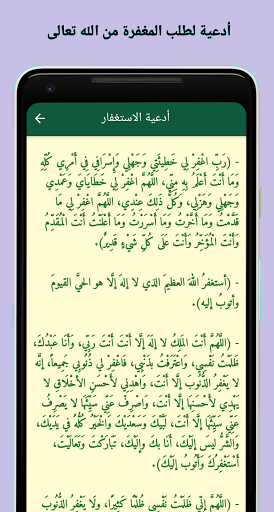 أدعية لطلب المغفرة من الله تعالى
أدعية الاستغفار
- (رَبِّ اغْفِرْ لِي خَطِيئَتِي وَجَهْلِي وَإِسْرَافِي فِي أَمْرِي كُلِّهِ
وَمَا أَنْتَ أَعْلَمُ بِهِ مِنِّي، اللَّهُمَّ اغْفِرْ لِي خَطَايَايَ وَعَمْدِي
وَجَهْلِي وَهَزْلِي، وَكُلُّ ذَلِكَ عِنْدِي، اللَّهُمَّ اغْفِرْ لِي مَا
قَدَّمْتُ وَمَا أَخَّرْتُ وَمَا أَسْرَرْتُ وَمَا أَعْلَنْتُ أَنْتَ الْمُقَدِّمُ
وَأَنْتَ الْمُؤَخِّرُ وَأَنْتَ عَلَى كُلِّ شَيْءٍ قَدِيرٌ).
- (أستغفرُ اللهَ العظيمَ الذي لا إلهَ إلَّا هو الحيَّ القيومَ
وأتوبُ إليه).
- (اللَّهُمَّ أَنْتَ المَلِكُ لا إلَهَ إلَّا أَنْتَ أَنْتَ رَبِّي، وَأَنَا عَبْدُكَ،
ظَلَمْتُ نَفْسِي، وَاعْتَرَفْتُ بذَنْبِي، فَاغْفِرْ لي ذُنُوبِي جَمِيعاً، إنَّه
لا يَغْفِرُ الذُّنُوبَ إلَّا أَنْتَ، وَاهْدِنِي لأَحْسَنِ الأخْلَاقِ لا
يَهْدِي لأَحْسَنِهَا إلَّا أَنْتَ، وَاصْرِفْ عَنِّي سَيِّئَهَا لا يَصْرِفُ
عَنِّي سَيِّئَهَا إلَّا أَنْتَ، لَبَّيْكَ وَسَعْدَيْكَ وَالْخَيْرُ كُلُّهُ في يَدَيْكَ،
وَالشَّرُّ ليسَ إلَيْكَ، أَنَا بكَ وإلَيْكَ، تَبَارَكْتَ وَتَعَالَيْتَ،
أَسْتَغْفِرُكَ وَأَتُوبُ إلَيْكَ).
- (اللَّهُمَّ إنِّي ظَلَمْتُ نَفْسِي ظُلْمًا كَثِيرًا، ولَا يَغْفِرُ الذُّنُوبَ